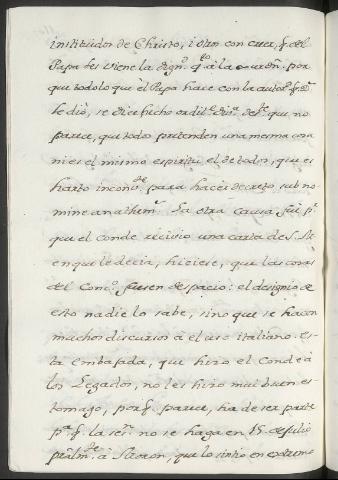 instituidor de Christo, i otro con creer, q. del
Papa les viene la dign.d q.to à la por
que todo lo que el Papa hace con la autor.d q. D.s
le diò, se dice hecho que no
parece, que todo pretenden una mesma cosa
ni es el mismo espiritu el de todos, que es
harto inconv.te para hacer decreto, sub no
mine anathem. La otra causa fuè p.r
que el conde recivio una carta de S. M.
en que le decia, hiciese, que las cosas
del Conc.o fuesen despacio: el designio de
esto nadie lo sabe, sino que se hacen
muchos discursos à el uso italiano. es-
ta embajada, que hizo el Conde à
los Legados, no les hizo mui buen es-
tomago, porq. parece, ha de ser parte
p.a q. la ses.n no se haga en 15. de Julio
prâlm.te à Simon, que lo sintio en extremo